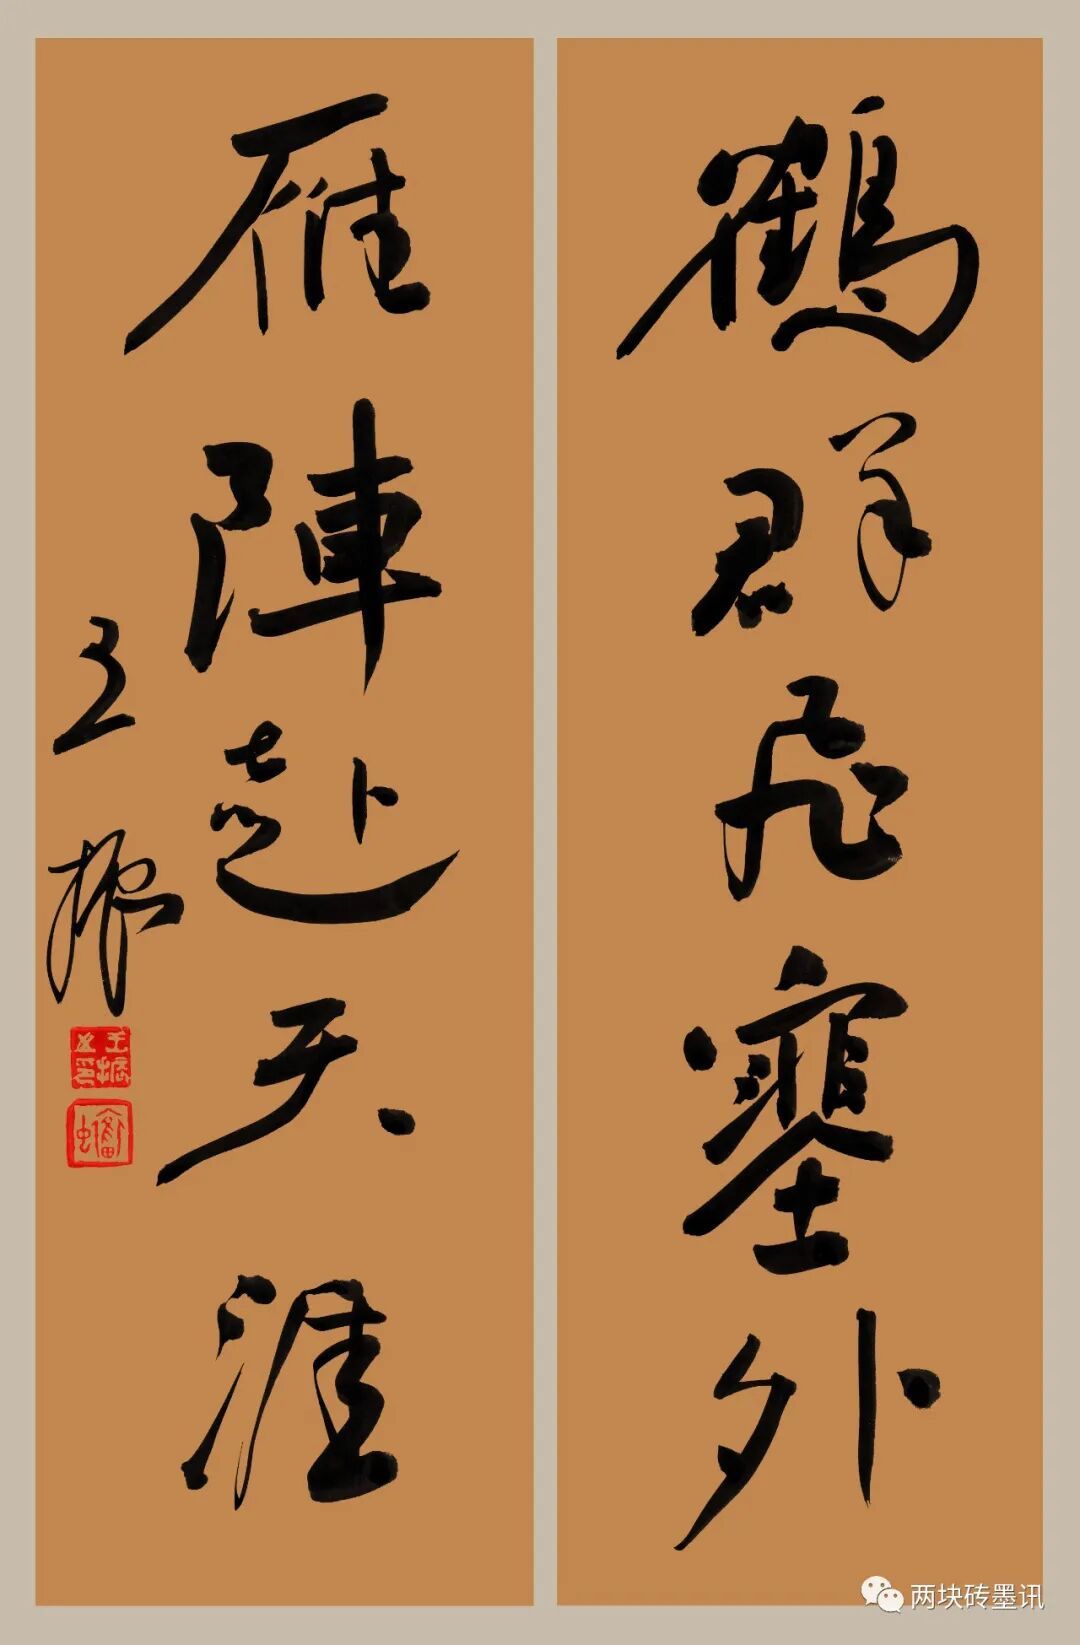 鶴群飛塞外
雁陣赴天涯
王振
两块砖墨讯